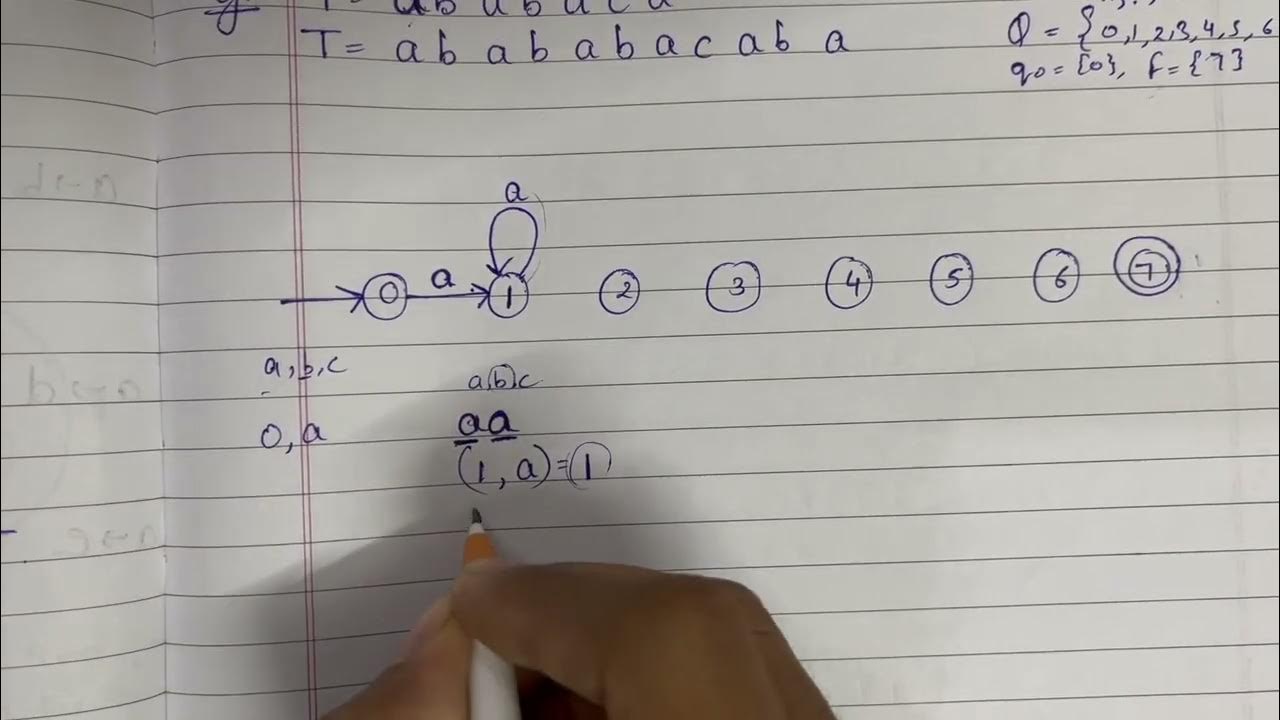 P = a b a b a c a
T = a b a b a b a c a b a
Q = {0,1,2,3,4,5,6
q0 = {0}, F = {7}
a
a
0 1 2 3 4 5 6 7
a,b,c
a,b,c
0, a
aa
(1, a) = 1